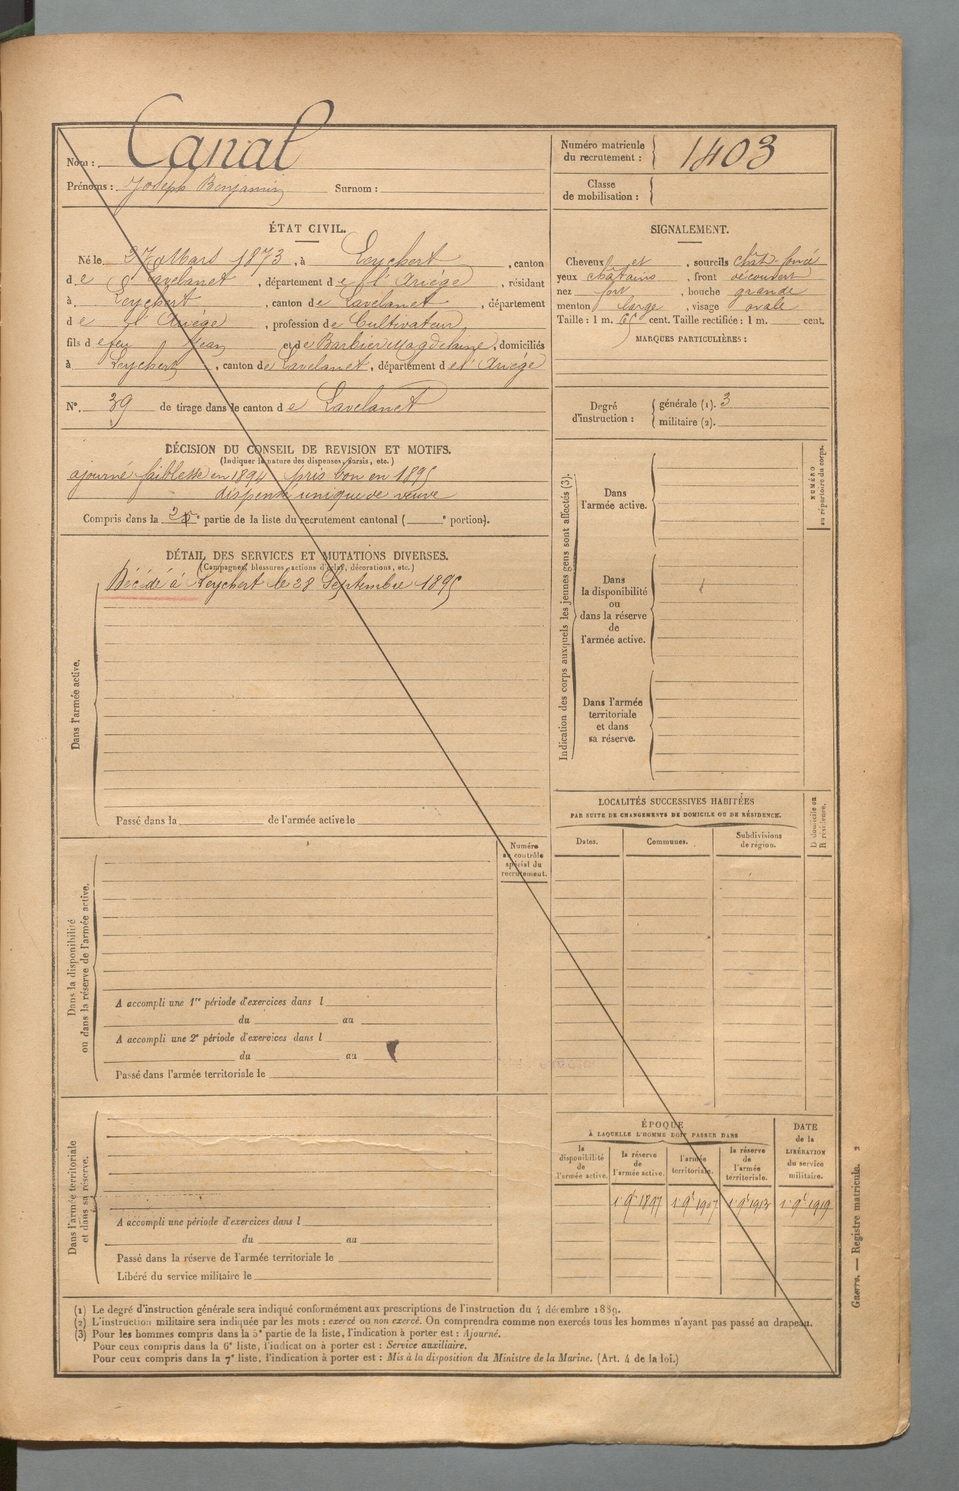 Nom : Canal
Prénoms : Joseph Benjamin Surnom :
Numéro matricule du recrutement : 1403
Classe de mobilisation :
ÉTAT CIVIL.
Né le 27 Mars 1873, à Leychert, canton
de Lavelanet, département de l'Ariège, résidant
à Leychert, canton de Lavelanet, département
de l'Ariège, profession de Cultivateur,
fils de feu Jean et de Barbier Magdelaine, domiciliés
à Leychert, canton de Lavelanet, département de l'Ariège
N° 39 de tirage dans le canton de Lavelanet
SIGNALEMENT.
Cheveux et, sourcils chât. foncé
yeux châtains, front découvert
nez fort, bouche grande
menton large, visage ovale
Taille : 1 m. 65 cent. Taille rectifiée : 1 m. cent.
MARQUES PARTICULIÈRES :
Degré d'instruction : générale (1). 3
militaire (2).
DÉCISION DU CONSEIL DE REVISION ET MOTIFS.
(Indiquer la nature des dispenses, sursis, etc.)
ajourné faiblesse en 1894 pris bon en 1895
dispensé unique de veuve
Compris dans la 2e partie de la liste du recrutement cantonal ( e portion).
DÉTAIL DES SERVICES ET MUTATIONS DIVERSES.
(Campagnes, blessures, actions d'éclat, décorations, etc.)
Décédé à Leychert le 28 Septembre 1895
Dans l'armée active.
Passé dans la de l'armée active le
Numéro au contrôle spécial du recrutement.
Dans la disponibilité
ou dans la réserve de l'armée active.
A accompli une 1re période d'exercices dans l
du au
A accompli une 2e période d'exercices dans l
du au
Passé dans l'armée territoriale le
Dans l'armée territoriale
et dans sa réserve.
A accompli une période d'exercices dans l
du au
Passé dans la réserve de l'armée territoriale le
Libéré du service militaire le
Indication des corps auxquels les jeunes gens sont affectés (3).
NUMÉRO
au répertoire du corps.
Dans
l'armée active.
Dans
la disponibilité
ou
dans la réserve
de
l'armée active.
Dans l'armée
territoriale
et dans
sa réserve.
LOCALITÉS SUCCESSIVES HABITÉES
PAR SUITE DE CHANGEMENTS DE DOMICILE OU DE RÉSIDENCE.
D domicile ou
R résidence.
Dates. Communes. Subdivisions de région.
ÉPOQUE
À LAQUELLE L'HOMME DOIT PASSER DANS
DATE de la LIBÉRATION du service militaire.
la disponibilité de l'armée active. la réserve de l'armée active. l'armée territoriale. la réserve de l'armée territoriale.
1 9e 1897 1 9e 1907 1 9e 1913 1 9e 1919
Guerre. — Registre matricule. 2
(1) Le degré d'instruction générale sera indiqué conformément aux prescriptions de l'instruction du 4 décembre 1889.
(2) L'instruction militaire sera indiquée par les mots : exercé ou non exercé. On comprendra comme non exercés tous les hommes n'ayant pas passé au drapeau.
(3) Pour les hommes compris dans la 5e partie de la liste, l'indication à porter est : Ajourné.
Pour ceux compris dans la 6e liste, l'indication à porter est : Service auxiliaire.
Pour ceux compris dans la 7e liste, l'indication à porter est : Mis à la disposition du Ministre de la Marine. (Art. 4 de la loi.)